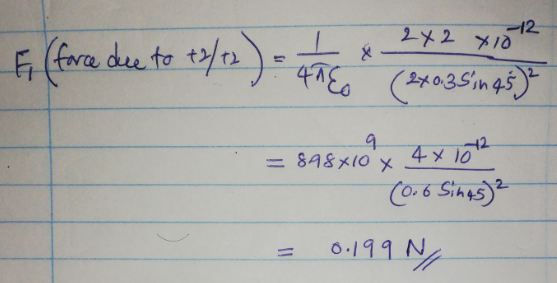 F₁ (force due to +2/+2) = 1/4πε₀ × 2×2 ×10⁻¹²/(2×0.3Sin45)²
= 898×10⁹ × 4×10⁻¹²/(0.6 Sin45)²
= 0.199 N//